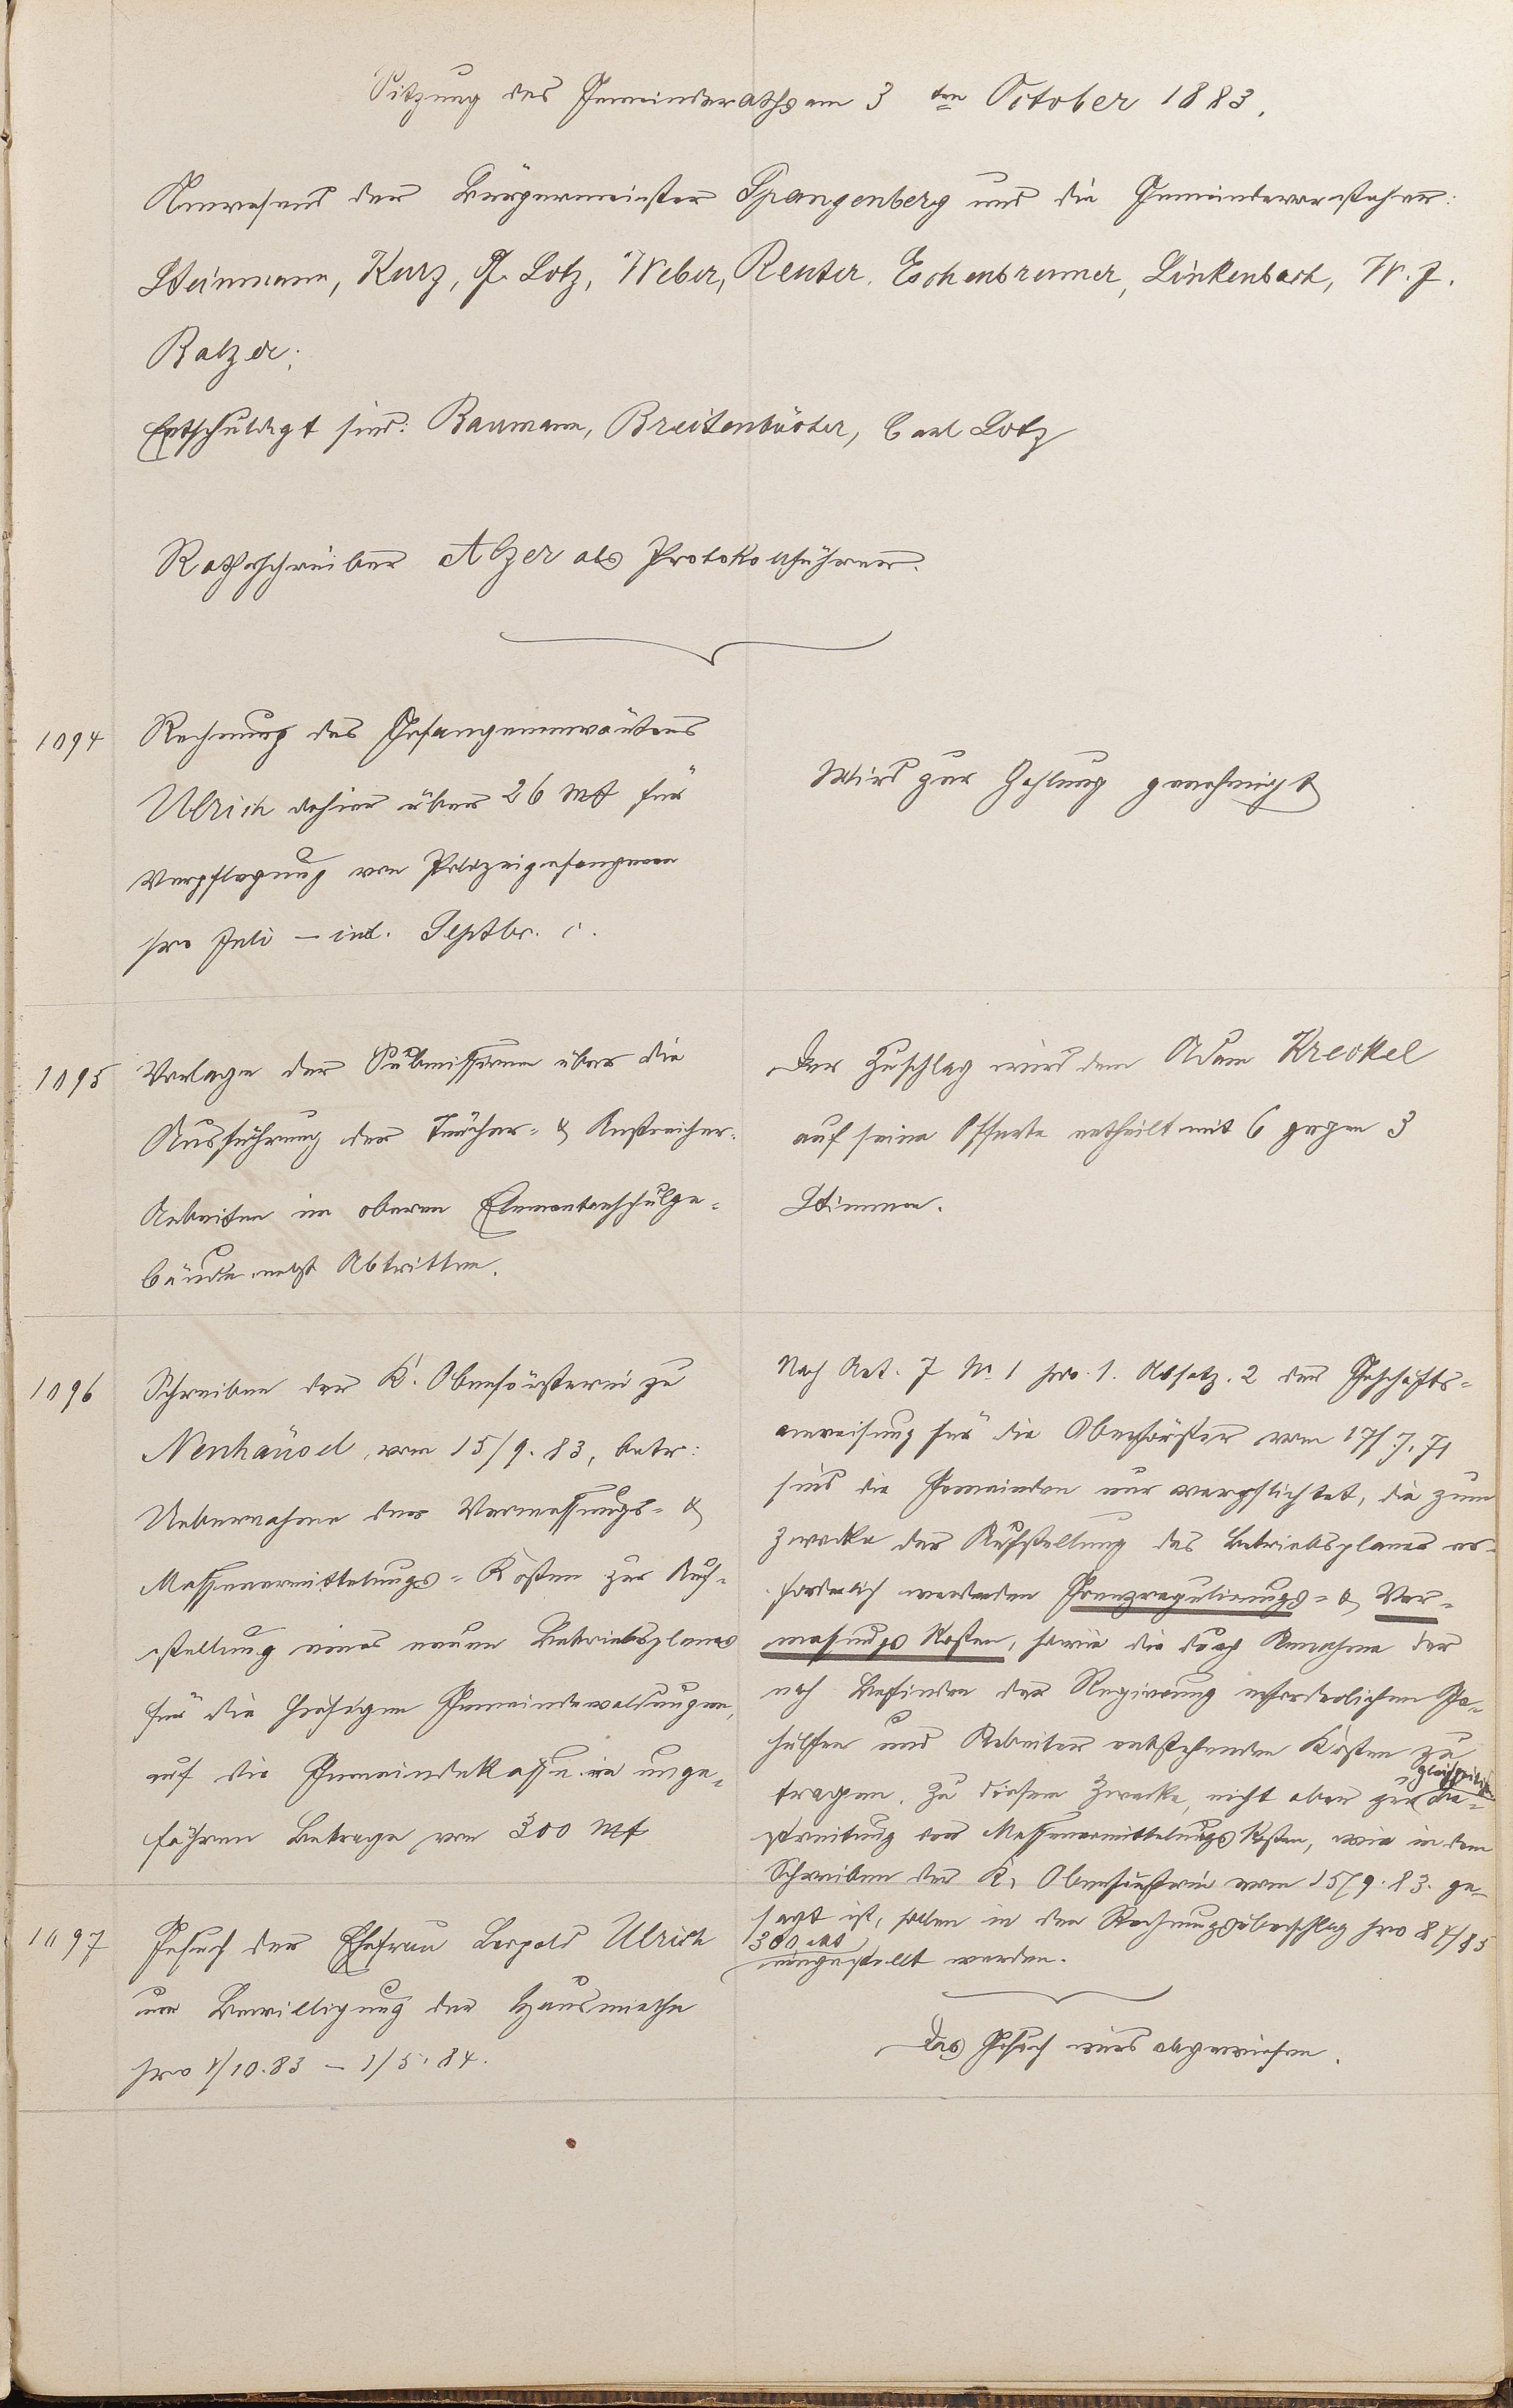 Sitzung des Gemeinderaths am 3 ten October 1883.
Anwesend der Bürgermeister Spangenberg und die Gemeindevorsteher:
Steinmann, Kurz, F. Lotz, Weber, Reuter, Eschenbrenner, Linkenbach, W. J.
Balzer;
Entschuldigt sind: Baumann, Breitenbücher, Carl Lotz
Rathsschreiber Alzer als Protokollführer.
1094
Rechnung des Gefangenenwärters
Ulrich dahier über 26 Mk für
Verpflegung von Polizeigefangenen
pro Juli – incl. Septbr. c.
Wird zur Zahlung genehmigt
1095
Vorlage der Submissionen über die
Ausführung der Tüncher- & Anstreicher-
Arbeiten im oberen Elementarschulge-
bäude nebst Abtritten.
Der Zuschlag wird dem Adam Kreckel
auf seine Offerte ertheilt mit 6 gegen 3
Stimmen.
1096
Schreiben der K. Oberförsterei zu
Neuhäusel, vom 15/9. 83, betr:
Uebernahme der Vermessungs- &
Massenermittelungs-Kosten zur Auf-
stellung eines neuen Betriebsplanes
für die hiesigen Gemeindewaldungen,
auf die Gemeindekasse im unge-
fähren Betrage von 300 Mk
Nach Art. 7 № 1 pos. 1. Absatz. 2 der Geschäfts-
anweisung für die Oberförster vom 17/7. 71
sind die Gemeinden nur verpflichtet, die zum
Zwecke der Aufstellung des Betriebsplanes er-
forderlich werdenden Grenzregulirungs- & Ver-
messungs Kosten, sowie die durch Annahme der
nach Befinden der Regierung erforderlichen Ge-
hülfen und Arbeiter entstehenden Kosten zu
tragen. Zu diesem Zwecke, nicht aber zur gleichzeitigen Be-
streitung der Massenermittelungs Kosten, wie in dem
Schreiben der K. Oberförsterei vom 15/9. 83. ge-
sagt ist, sollen in den Rechnungsüberschlag pro 84/85
300 Mk
eingestellt werden.
1097
Gesuch der Ehefrau Leopold Ulrich
um Bewilligung der Hausmiethe
pro 1/10. 83 – 1/5. 84.
Das Gesuch wird abgewiesen.